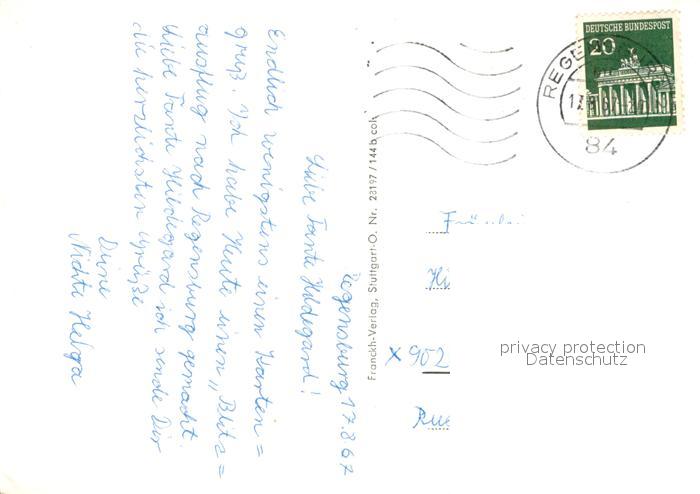 Regensburg 17.8.67
Liebe Tante Hildegard!
Endlich wenigstens einen Karten=
gruß. Ich habe Heute einen „Blitz=
ausflug nach Regensburg gemacht.
Liebe Tante Hildegard ich sende Dir
die herzlichsten Grüße
Deine
Nichte Helga
Franckh-Verlag, Stuttgart-O. Nr. 28197/144b col.
DEUTSCHE BUNDESPOST
20
84
Hi
X 902
privacy protection
Datenschutz